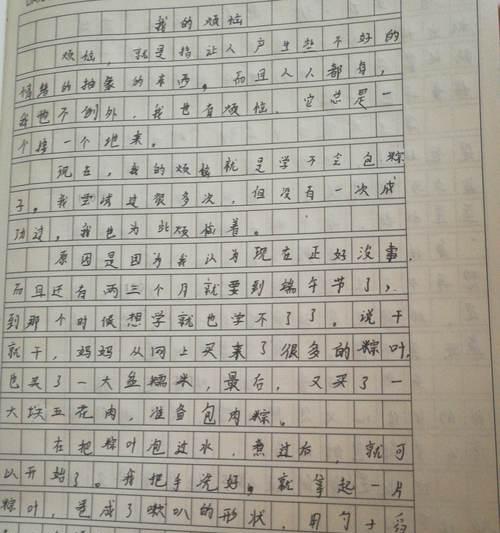 我的烦恼
烦恼，就是指让人产生些不好的
情绪的抽象的东西。而且人人都有，
我也不例外，我也有烦恼，它总是一
个接一个地来。
现在，我的烦恼就是学不会包粽
子。我尝试过很多次，但没有一次成
功过，我也为此烦恼着。
原因是因为我认为现在正好没事，
而且还有两三个月就要到端午节了，
到那个时候想学就也学不了了。说干
就干，妈妈从网上买来了很多的粽叶，
也买了一大盆糯米，最后，又买了一
大块五花肉，准备包肉粽。
在把粽叶泡过水，煮过后，就可
以开始了。我把手洗好。就拿起一片
粽叶，卷成了喇叭的形状，用勺子舀